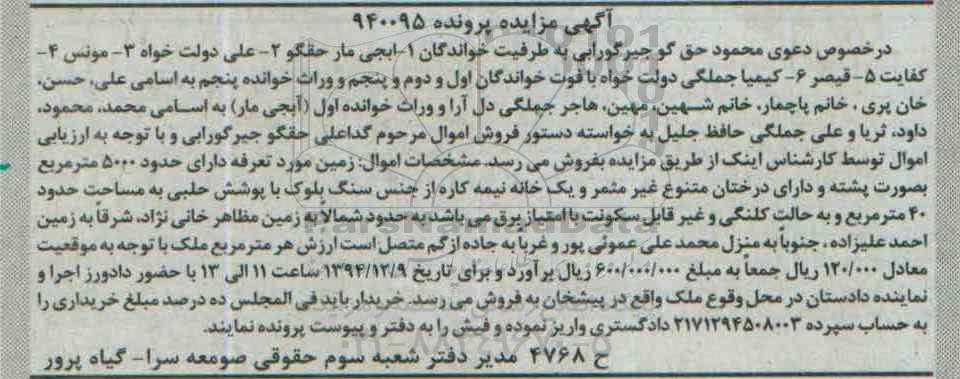 آگهی مزایده پرونده ۹۴۰۰۹۵
درخصوص دعوی محمود حق گو جیرگورابی به طرفیت خواندگان ۱-ابجی مار حقگو ۲- علی دولت خواه ۳- مونس ۴-
کفایت ۵- قیصر ۶- کیمیا جملگی دولت خواه با فوت خواندگان اول و دوم و پنجم و وراث خوانده پنجم به اسامی علی، حسن،
خان پری ، خانم پاچمار، خانم شهین، مهین، هاجر جملگی دل آرا و وراث خوانده اول (آبجی مار) به اسامی محمد، محمود،
داود، ثریا و علی جملگی حافظ جلیل به خواسته دستور فروش اموال مرحوم گداعلی حقگو جیرگورابی و با توجه به ارزیابی
اموال توسط کارشناس اینک از طریق مزایده بفروش می رسد. مشخصات اموال: زمین مورد تعرفه دارای حدود ۵۰۰۰ مترمربع
بصورت پشته و دارای درختان متنوع غیر مثمر و یک خانه نیمه کاره از جنس سنگ بلوک با پوشش حلبی به مساحت حدود
۴۰ مترمربع و به حالت کلنگی و غیر قابل سکونت با امتیاز برق می باشد به حدود شمالاً به زمین مظاهر خانی نژاد، شرقاً به زمین
احمد علیزاده ، جنوباً به منزل محمد علی عموئی پور و غرباً به جاده ازگم متصل است ارزش هر مترمربع ملک با توجه به موقعیت
معادل ۱۲۰/۰۰۰ ریال جمعاً به مبلغ ۶۰۰/۰۰۰/۰۰۰ ریال برآورد و برای تاریخ ۱۳۹۴/۱۲/۹ ساعت ۱۱ الی ۱۳ با حضور دادورز اجرا و
نماینده دادستان در محل وقوع ملک واقع در پیشخان به فروش می رسد. خریدار باید فی المجلس ده درصد مبلغ خریداری را
به حساب سپرده ۲۱۷۱۲۹۴۵۰۸۰۰۳ دادگستری واریز نموده و فیش را به دفتر و پیوست پرونده نمایند.
ح ۴۷۶۸ مدیر دفتر شعبه سوم حقوقی صومعه سرا- گیاه پرور
ParsNamadData